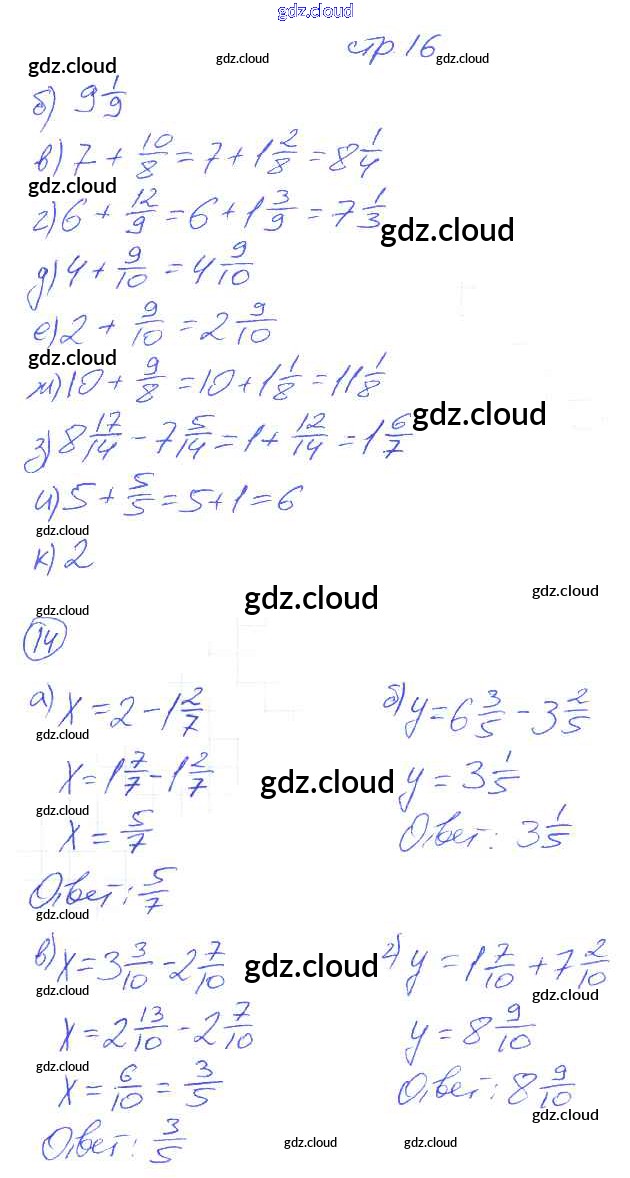 gdz.cloud
стр 16
gdz.cloud gdz.cloud gdz.cloud
б) 9 1/9
в) 7 + 10/8 = 7 + 1 2/8 = 8 1/4
gdz.cloud
г) 6 + 12/9 = 6 + 1 3/9 = 7 1/3
gdz.cloud
д) 4 + 9/10 = 4 9/10
е) 2 + 9/10 = 2 9/10
gdz.cloud
ж) 10 + 9/8 = 10 + 1 1/8 = 11 1/8
gdz.cloud
з) 8 17/14 - 7 5/14 = 1 + 12/14 = 1 6/7
и) 5 + 5/5 = 5 + 1 = 6
gdz.cloud
к) 2
gdz.cloud gdz.cloud gdz.cloud
14
а) x = 2 - 1 2/7
gdz.cloud
x = 1 7/7 - 1 2/7
gdz.cloud
x = 5/7
gdz.cloud
Ответ: 5/7
gdz.cloud
б) y = 6 3/5 - 3 2/5
y = 3 1/5
Ответ: 3 1/5
в) x = 3 3/10 - 2 7/10
gdz.cloud gdz.cloud
x = 2 13/10 - 2 7/10
gdz.cloud
x = 6/10 = 3/5
Ответ: 3/5
г) y = 1 7/10 + 7 2/10
gdz.cloud
y = 8 9/10
Ответ: 8 9/10
gdz.cloud
gdz.cloud gdz.cloud